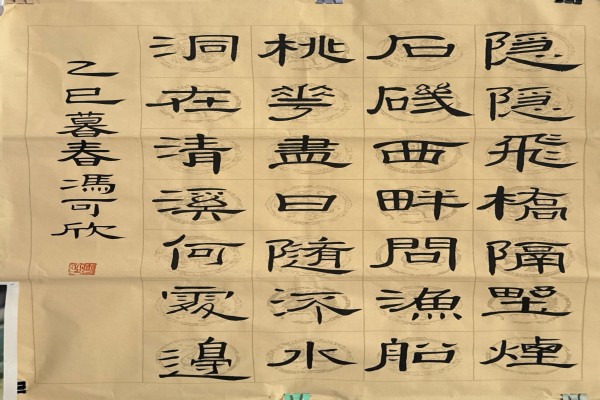 隐隐飛橋隔墅煙
石磯西畔問漁船
桃花盡日随流水
洞在清溪何處邊
乙巳暮春馮可欣